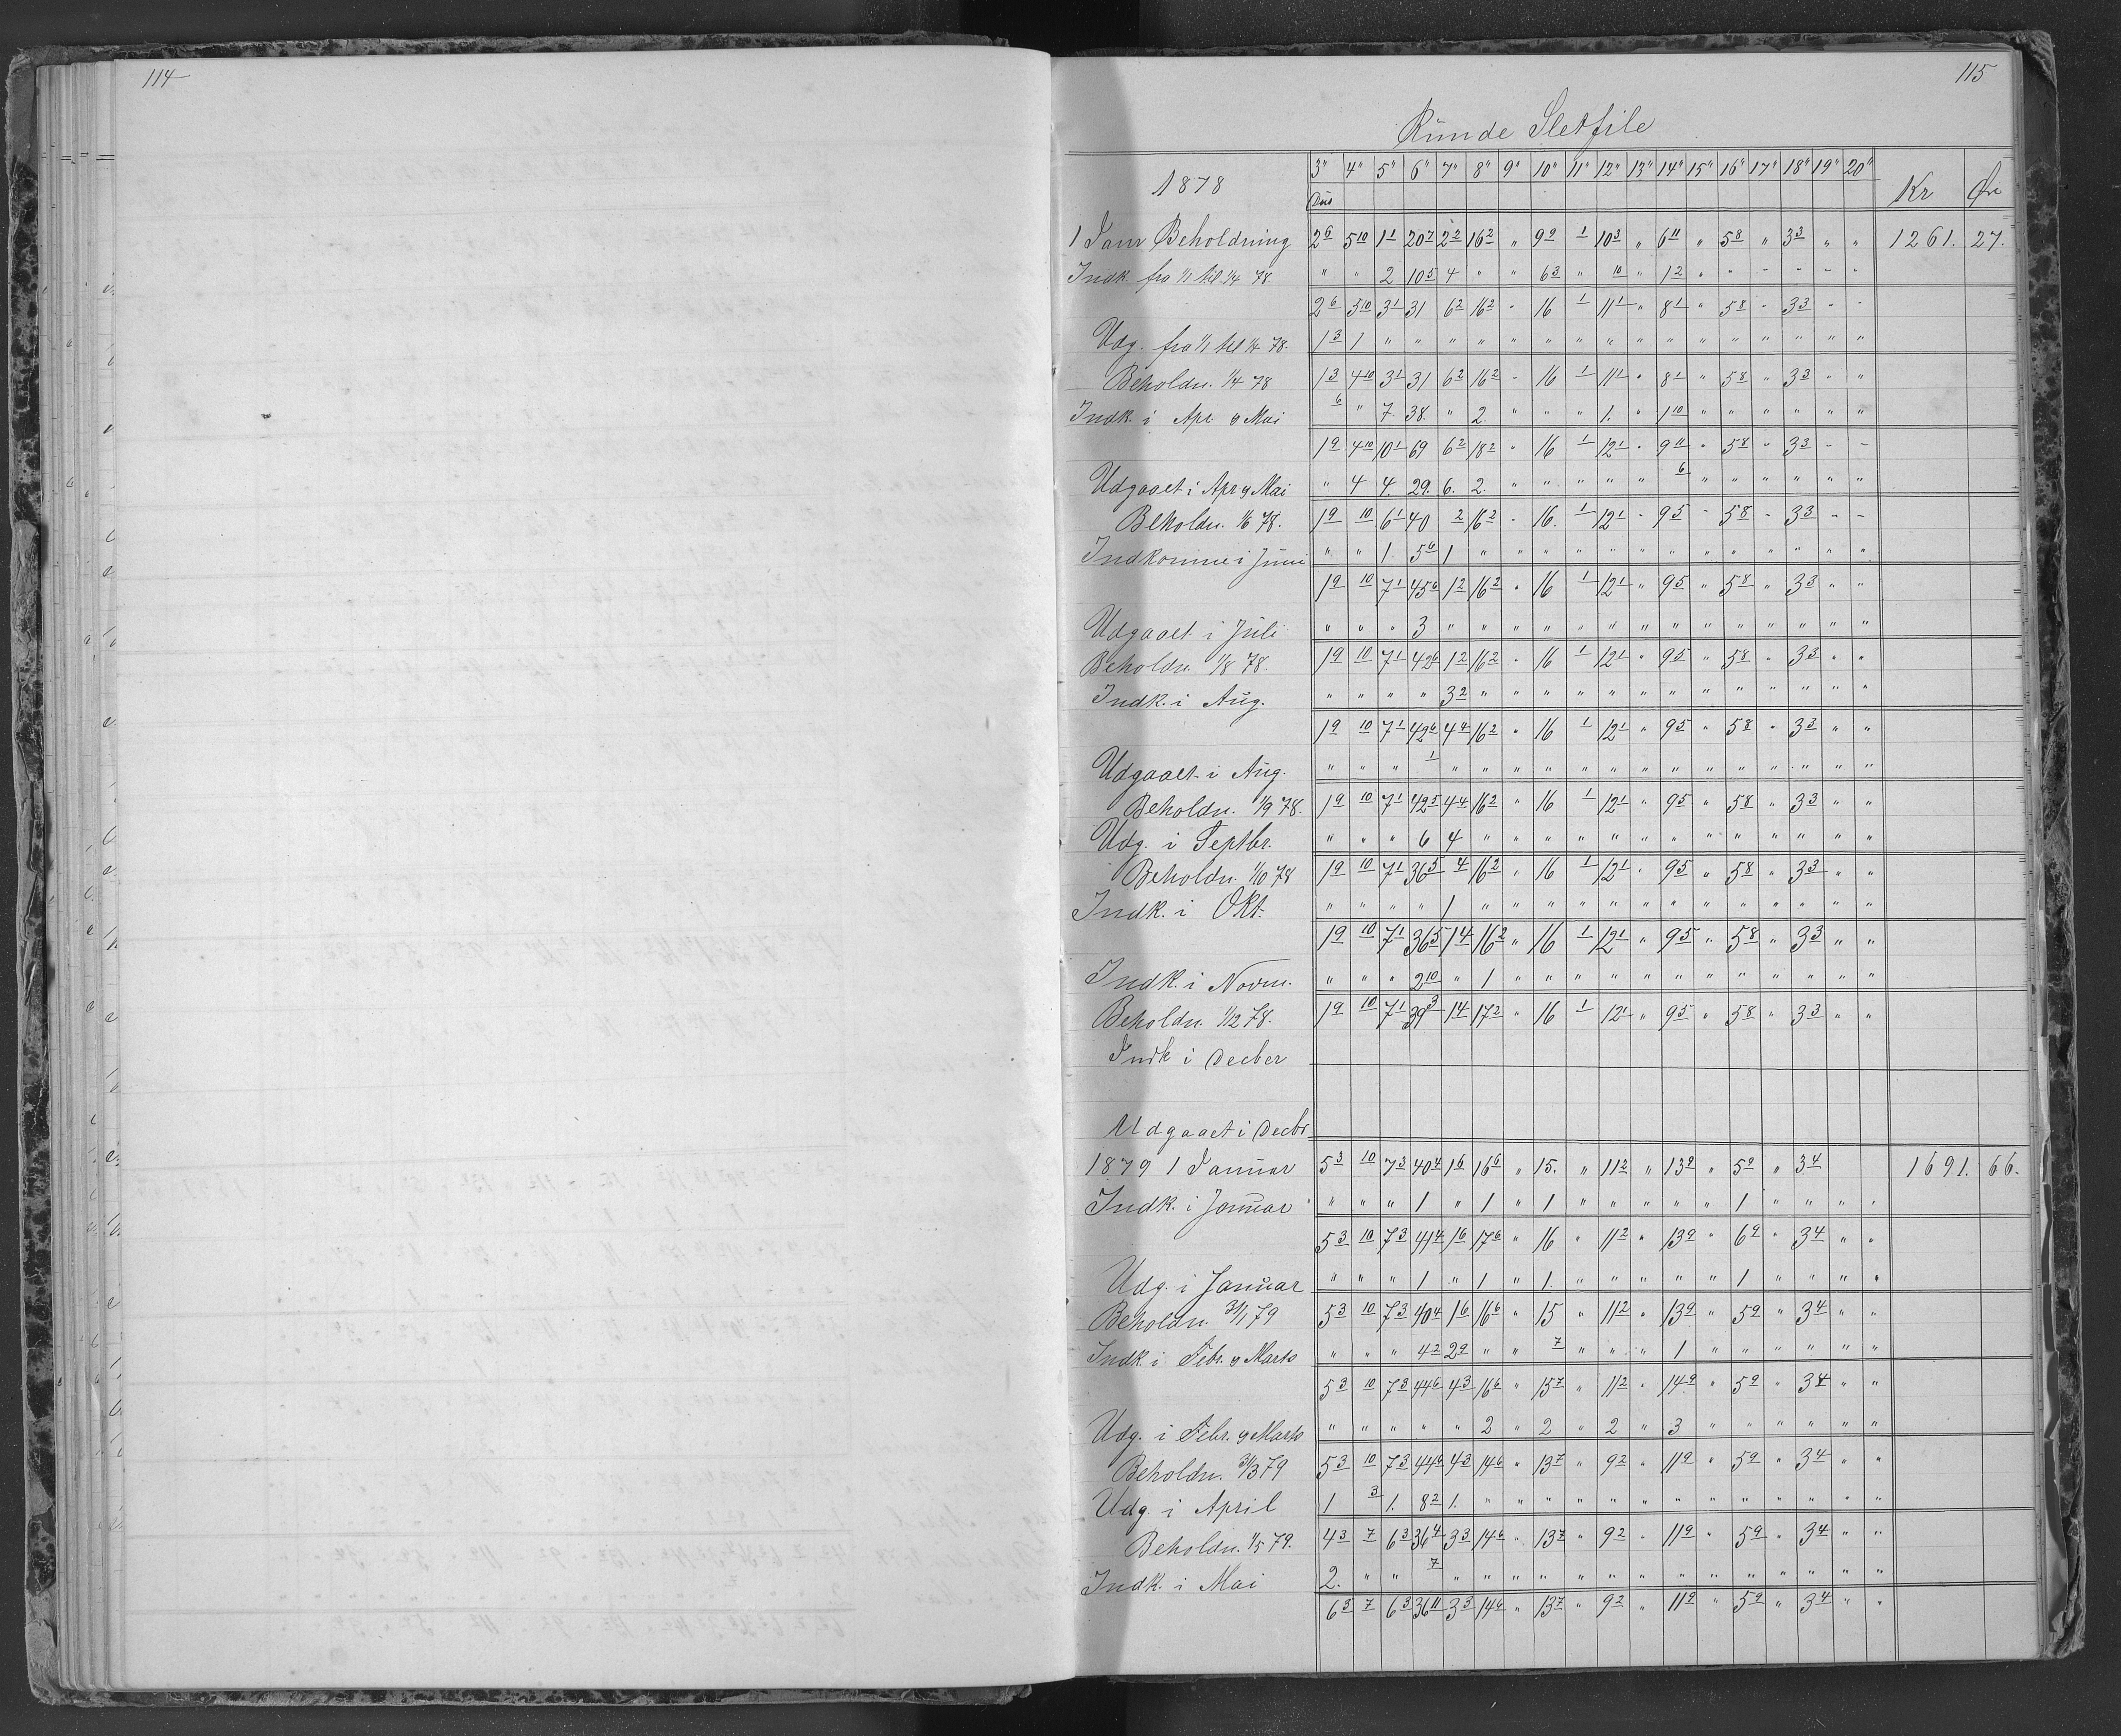 114
115
Runde Sletfile
1878 3" 4" 5" 6" 7" 8" 9" 10" 11" 12" 13" 14" 15" 16" 17" 18" 19" 20" Kr Øre
Dus
1 Janr Beholdning 2 6 5 10 1 1 20 7 2 2 16 2 " 9 9 1 10 3 " 6 11 " 5 8 " 3 3 " " 1261. 27.
Indk. fra 1/1 til 1/4 78. " " 2 10 5 4 " " 6 3 " 10 " 1 2 " " " " " "
2 6 5 10 3 1 31 6 2 16 2 " 16 1 11 1 " 8 1 " 5 8 " 3 3 " "
Udg. fra 1/1 til 1/4 78. 1 3 1 " " " " " " " " " " " " " " " "
Beholdn. 1/4 78 1 3 4 10 3 1 31 6 2 16 2 " 16 1 11 1 " 8 1 " 5 8 " 3 3 " "
Indk. i Apr. & Mai 6 " 7. 38. " 2. " " " 1. " 1 10 " " " " " "
1 9 4 10 10 1 69 6 2 18 2 " 16 1 12 1 " 9 11 " 5 8 " 3 3 " "
Udgaaet i Apr & Mai " 4 4. 29. 6. 2. " " " " " 6 " " " " " "
Beholdn. 1/6 78. 1 9 10 6 1 40 2 16 2 " 16. 1 12 1 " 9 5 " 5 8 " 3 3 " "
Indkomme i Juni " " 1. 5 6 1 " " " " " " " " " " " " "
1 9 10 7 1 45 6 1 2 16 2 " 16 1 12 1 " 9 5 " 5 8 " 3 3 " "
Udgaaet i Juli " " " 3 " " " " " " " " " " " " " "
Beholdn. 1/8 78. 1 9 10 7 1 42 6 1 2 16 2 " 16 1 12 1 " 9 5 " 5 8 " 3 3 " "
Indk. i Aug. " " " " 3 2 " " " " " " " " " " " " "
1 9 10 7 1 42 6 4 4 16 2 " 16 1 12 1 " 9 5 " 5 8 " 3 3 " "
Udgaaet i Aug. " " " 1 " " " " " " " " " " " " " "
Beholdn. 1/9 78. 1 9 10 7 1 42 5 4 4 16 2 " 16 1 12 1 " 9 5 " 5 8 " 3 3 " "
Udg. i Septbr. " " " 6 4 " " " " " " " " " " " " "
Beholdn. 1/10 78 1 9 10 7 1 36 5 4 16 2 " 16 1 12 1 " 9 5 " 5 8 " 3 3 " "
Indk. i Okt. " " " " 1 " " " " " " " " " " " " "
1 9 10 7 1 36 5 1 4 16 2 " 16 1 12 1 " 9 5 " 5 8 " 3 3 " "
Indk. i Novm. " " " 2 10 " 1 " " " " " " " " " " " "
Beholdn. 1/12 78. 1 9 10 7 1 39 3 1 4 17 2 " 16 1 12 1 " 9 5 " 5 8 " 3 3 " "
Indk i Decber
Udgaaet i Decbr
1879 1 Januar 5 3 10 7 3 40 4 1 6 16 6 " 15. " 11 2 " 13 9 " 5 9 " 3 4 1691. 66.
Indk. i Januar " " " 1 " 1 " 1 " " " " " 1 " " " "
5 3 10 7 3 41 4 1 6 17 6 " 16 " 11 2 " 13 9 " 6 9 " 3 4 " "
Udg. i Januar " " " 1 " 1 " 1. " " " " " 1 " " " "
Beholdn. 31/1 79 5 3 10 7 3 40 4 1 6 16 6 " 15 " 11 2 " 13 9 " 5 9 " 3 4 " "
Indk i Febr. & Marts " " " 4 2 2 9 " " 7 " " " 1 " " " " " "
5 3 10 7 3 44 6 4 3 16 6 " 15 7 " 11 2 " 14 9 " 5 9 " 3 4 " "
Udg. i Febr. & Marts " " " " " 2 " 2 " 2 " 3 " " " " " "
Beholdn. 31/3 79 5 3 10 7 3 44 6 4 3 14 6 " 13 7 " 9 2 " 11 9 " 5 9 " 3 4 " "
Udg. i April 1 3 1. 8 2 1. " " " " " " " " " " " " "
Beholdn. 1/5 79. 4 3 7 6 3 36 4 3 3 14 6 " 13 7 " 9 2 " 11 9 " 5 9 " 3 4 " "
Indk. i Mai 2. " " 7 " " " " " " " " " " " " " "
6 3 7 6 3 36 11 3 3 14 6 " 13 7 " 9 2 " 11 9 " 5 9 " 3 4 " "